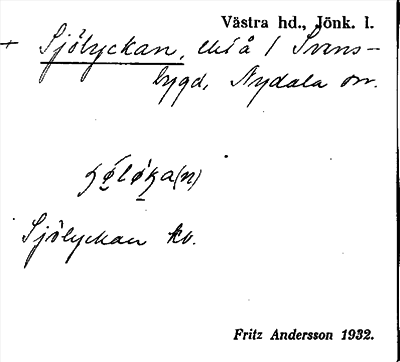 Västra hd., Jönk. l.
+ Sjölyckan, å / Svens-
bygd, Nydala sn.
Sjölyckan kv.
Fritz Andersson 1932.